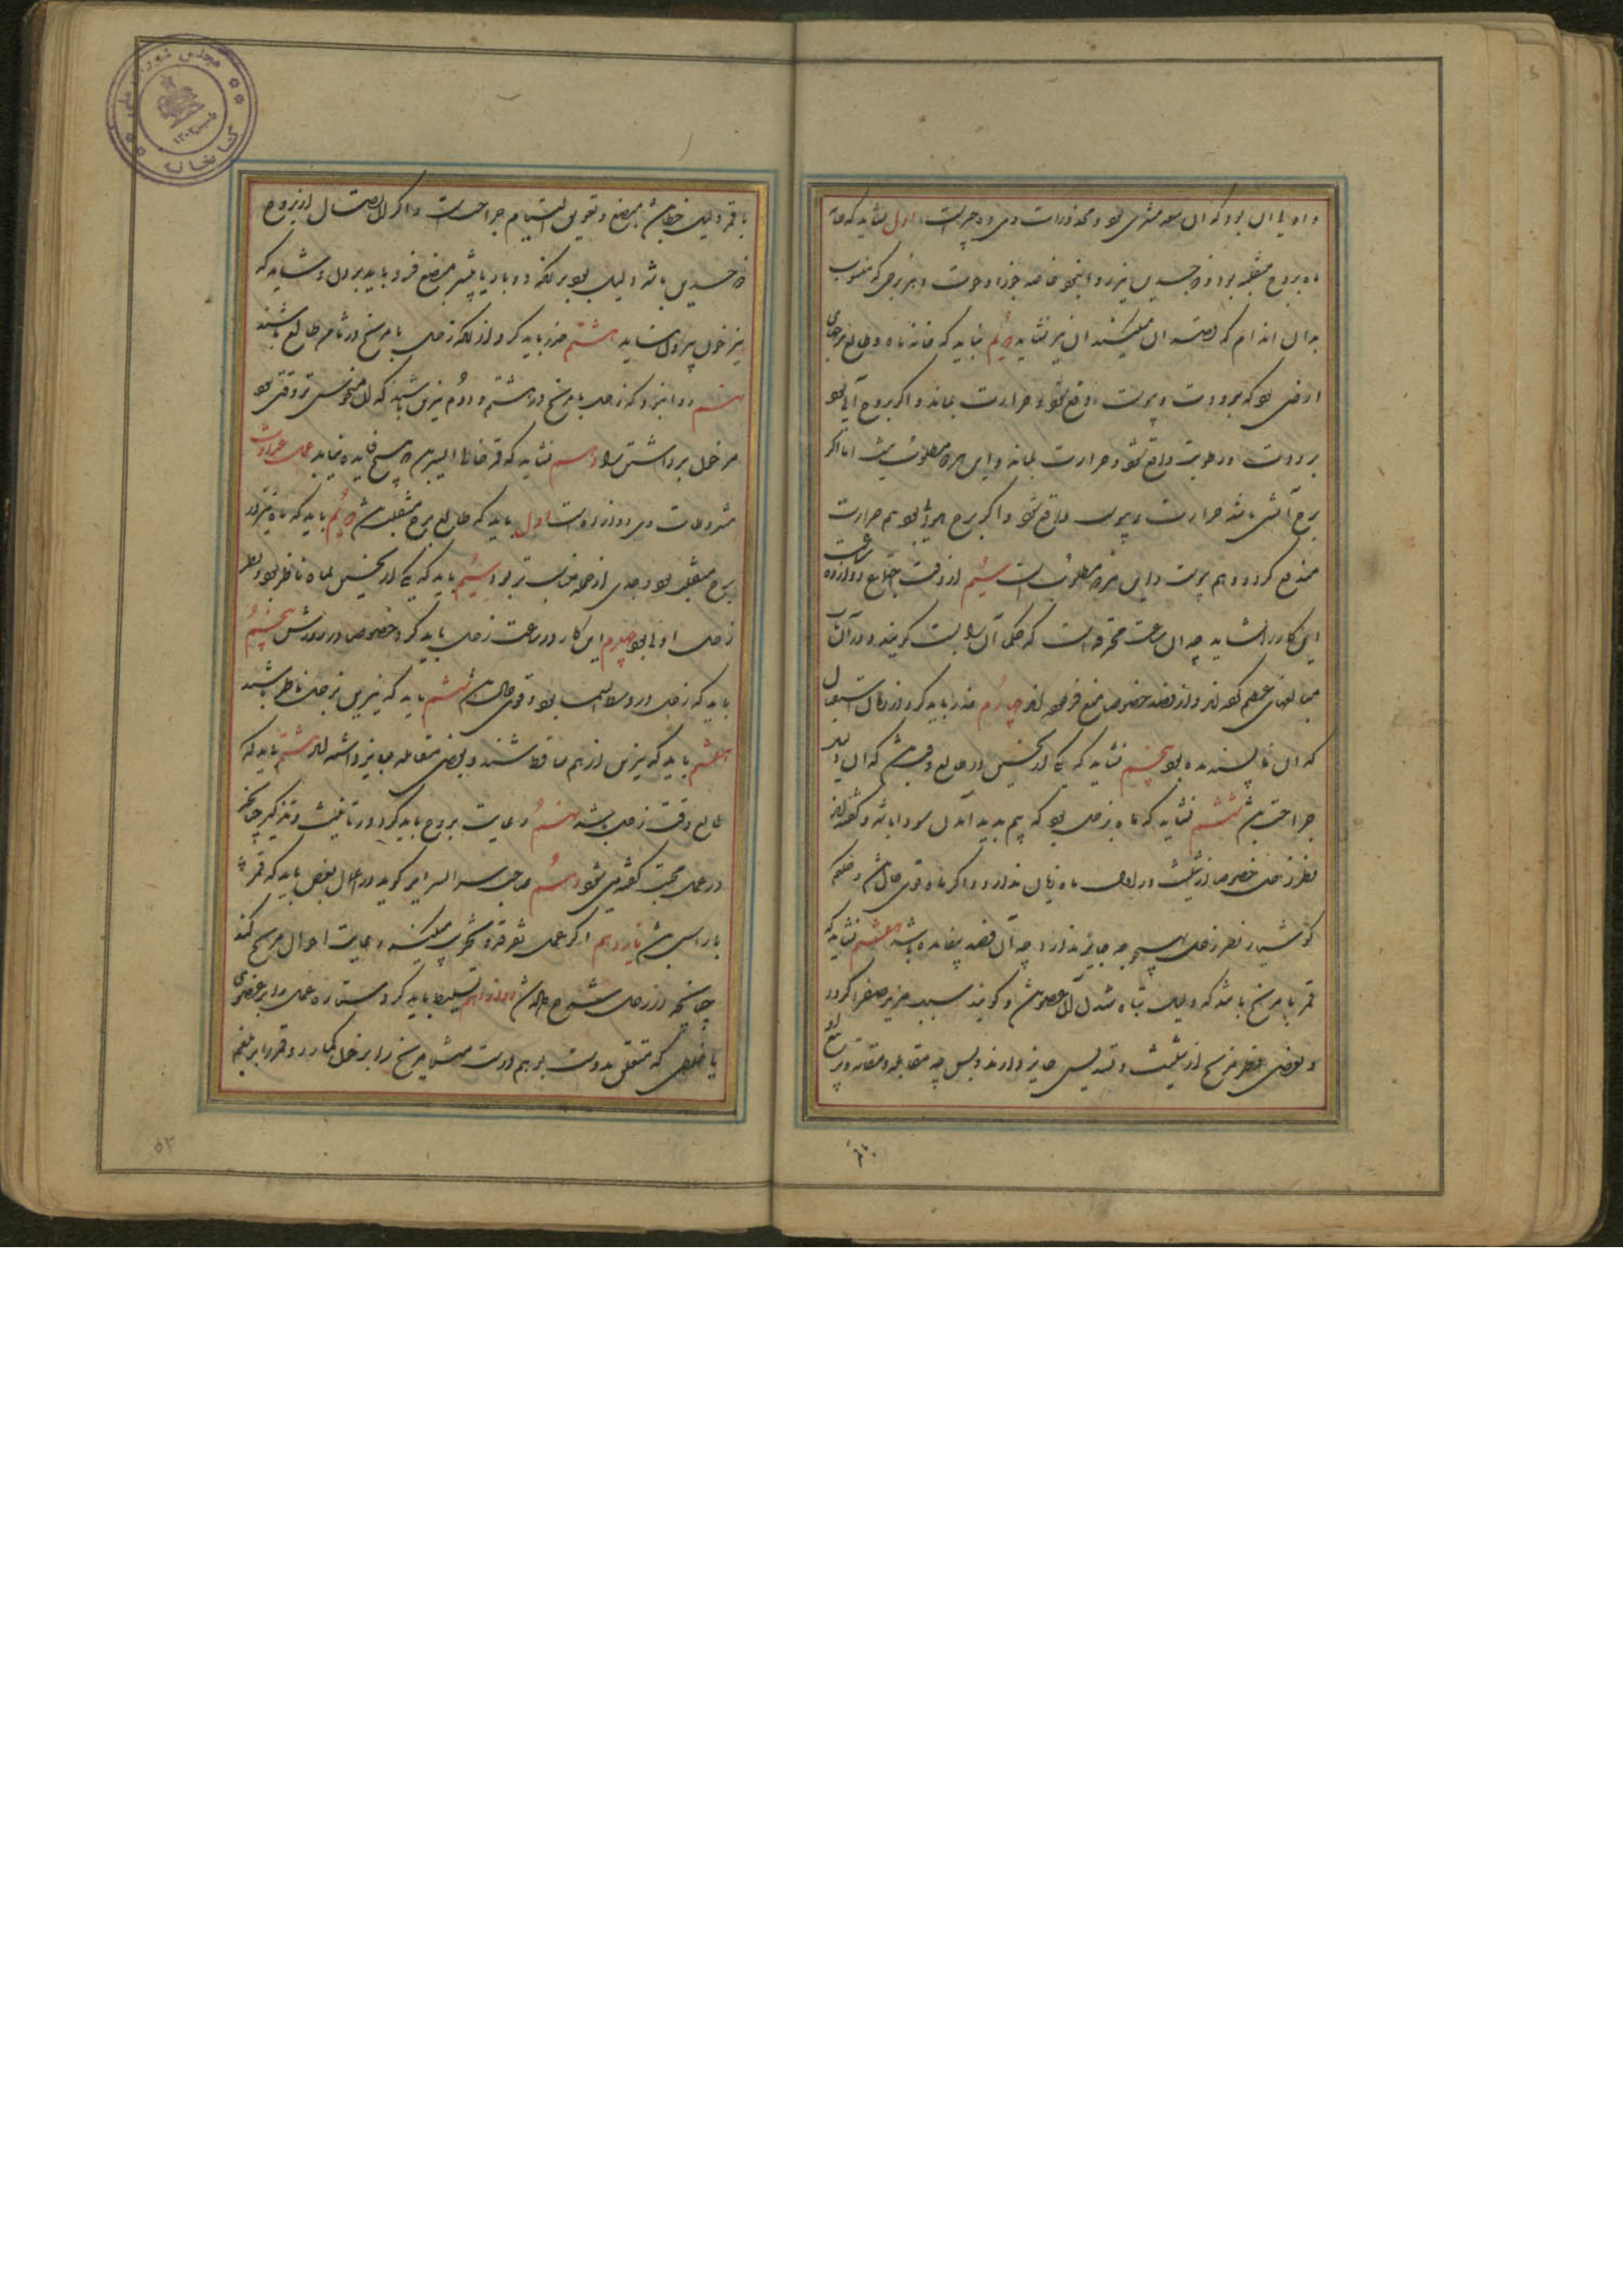 و اولی آن بود که آن سعد مشتری بود و محذورات وی ده چیزست اول نشاید که خانه
ماه بروج منقلبه بود و ذو جسدین نیز روا نبود خاصه جوزا و حوت و هر برجی که منسوب
بدان اندام که قصد آن میکنند آن نیز نشاید دوم نباید که خانه ماه و طالع برجهای
ارضی بود که برودت و یبوست واقع شود و حرارت بماند و اگر بروج آبی بود
برودت و رطوبت واقع شود و حرارت بماند و این هر دو مطلوب نیست اما اگر
برج آتشی باشد حرارت و یبوست واقع شود و اگر برج هوائی بود هم حرارت
مندفع گردد و هم یبوست و این هر دو مطلوبست سیم از وقت اجتماع دوازده ساعت
این کار را نشاید چه آن ساعت محترقه است که حکما آن را بست گویند و در آن باب
مبالغهای عظیم کرده‌اند و از فصد خصوصا منع فرموده‌اند چهارم حذر باید کرد از زمان استقبال
که آن ناپسندیده بود پنجم نشاید که یکی از نحسین در طالع وقت باشد که آن دلیل
جراحت باشد ششم نشاید که ماه بزحل بود که بیم پدید آمدن سودا باشد و گفته‌اند
نظر زحل خصوصا از تثلیث در اوایل ماه زیان ندارد و اگر ماه قوی حال باشد و حکیم
کوشیار نظر زحل بهیچ وجه جایز ندارد چه آن فصد بیفایده باشد هفتم نشاید که
قمر با مریخ باشد که دلیل تباه شدن آن عضو باشد و گویند سبب مزید صفرا گردد
و بعضی نظر مریخ از تثلیث و تسدیس جایز دارند و بس چه مقابله و مقارنه و تربیع او
با قمر دلیل خطا باشد بمبضع و تعویق التیام جراحتست و اگر اتصال از بروج
ذو جسدین باشد دلیل بود بر آنکه دو بار یا بیشتر مبضع فرو باید بردن و شاید که
نیز خون بیرون نیاید هشتم حذر باید کرد از آنکه زحل یا مریخ در ثامن طالع باشند
نهم روا نبود که زحل یا مریخ در هشتم و دوم نیرین باشند که آن منحوس‌تر وقتی بود
مر خون برداشتن را دهم نشاید که قمر خالی السیر بود که هیچ فایده نیابد عمل عداوت
مشروطات وی دوازده است اول باید که طالع برج منقلب باشد دوم باید که ماه نیز در
برج منقلب بود و جدی از همه مناسب‌تر بود سیم باید که یکی از نحسین بماه ناظر بود و نظر
زحل اولی بود چهارم این کار در ساعت زحل باید کرد خصوص در روزش پنجم
باید که زحل در وسط السما بود و قوی حال باشد ششم باید که نیرین بزحل ناظر باشند
هفتم باید که نیرین از هم ساقط باشند و بعضی مقابله جایز داشته‌اند هشتم باید که
طالع وقت زحل باشد نهم رعایت بروج باید کرد در تانیث و تذکیر چنانکه
در عمل محبت گفته می‌شود دهم صاحب سر السرایر گوید در اعمال بغض باید که قمر
با راس باشد یازدهم اگر عمل تفرقه و تخریب میکنند رعایت احوال مریخ کنند
چنانچه در زحل مشروح است دوازدهم تسلیط باید کرد ستاره عمل را بر عضوی
یا خلطی که متعلق بدوست بر هم دوست مثلا مریخ را بر خون گمارد و قمر را بر بلغم
۵۲